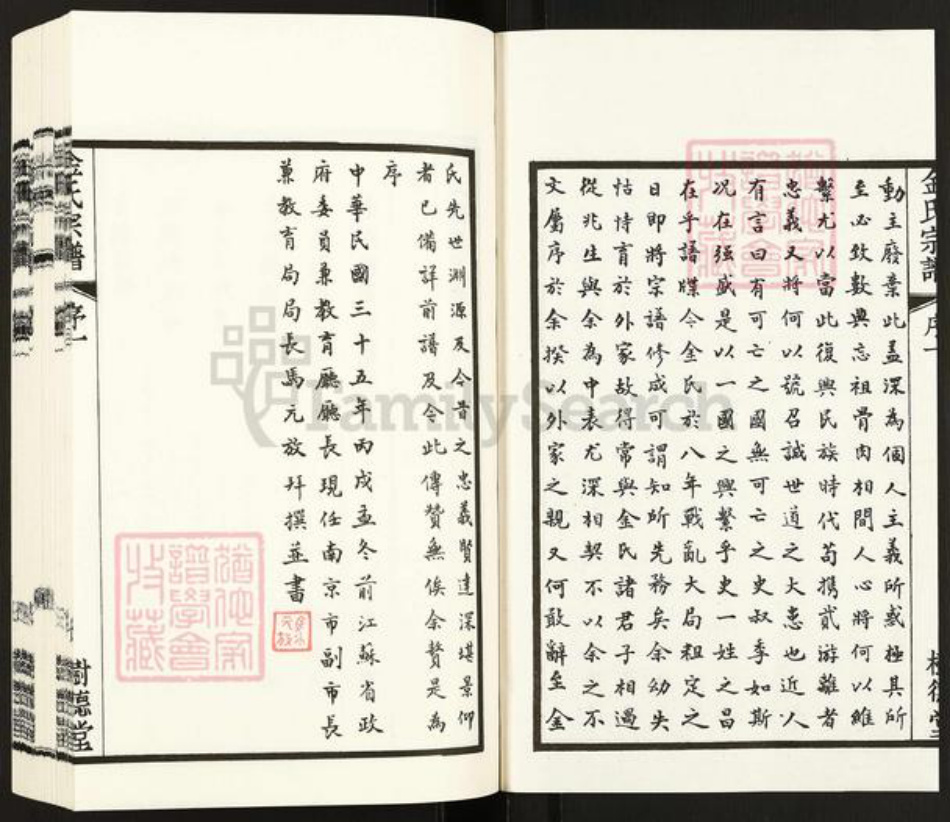 金氏宗譜
序一
樹德堂
動主廢棄此蓋深為個人主義所惑極其所
至必致數典忘祖骨肉相間人心將何以維
繫尤以當此復興民族時代苟攜貳游離者
忠義又將何以號召誠世道之大患也近人
有言曰有可亡之國無可亡之史叔季如斯
况在强盛是以一國之興繫乎史一姓之昌
在乎譜牒今金氏於八年戰亂大局粗定之
日即將宗譜修成可謂知所先務矣余幼失
怙恃育於外家故得常與金氏諸君子相過
從兆生與余為中表尤深相契不以余之不
文屬序於余揆以外家之親又何敢辭至金
氏先世淵源及今昔之忠義賢達深堪景仰
者已備詳前譜及今此傳贊無俟余贅是為
序
中華民國三十五年丙戌孟冬前江蘇省政
府委員兼教育廳廳長現任南京市副市長
兼教育局局長馬元放拜撰並書
金氏宗譜
序一
樹德堂
FamilySearch
猶他家
譜學會
收藏
猶他家
譜學會
收藏